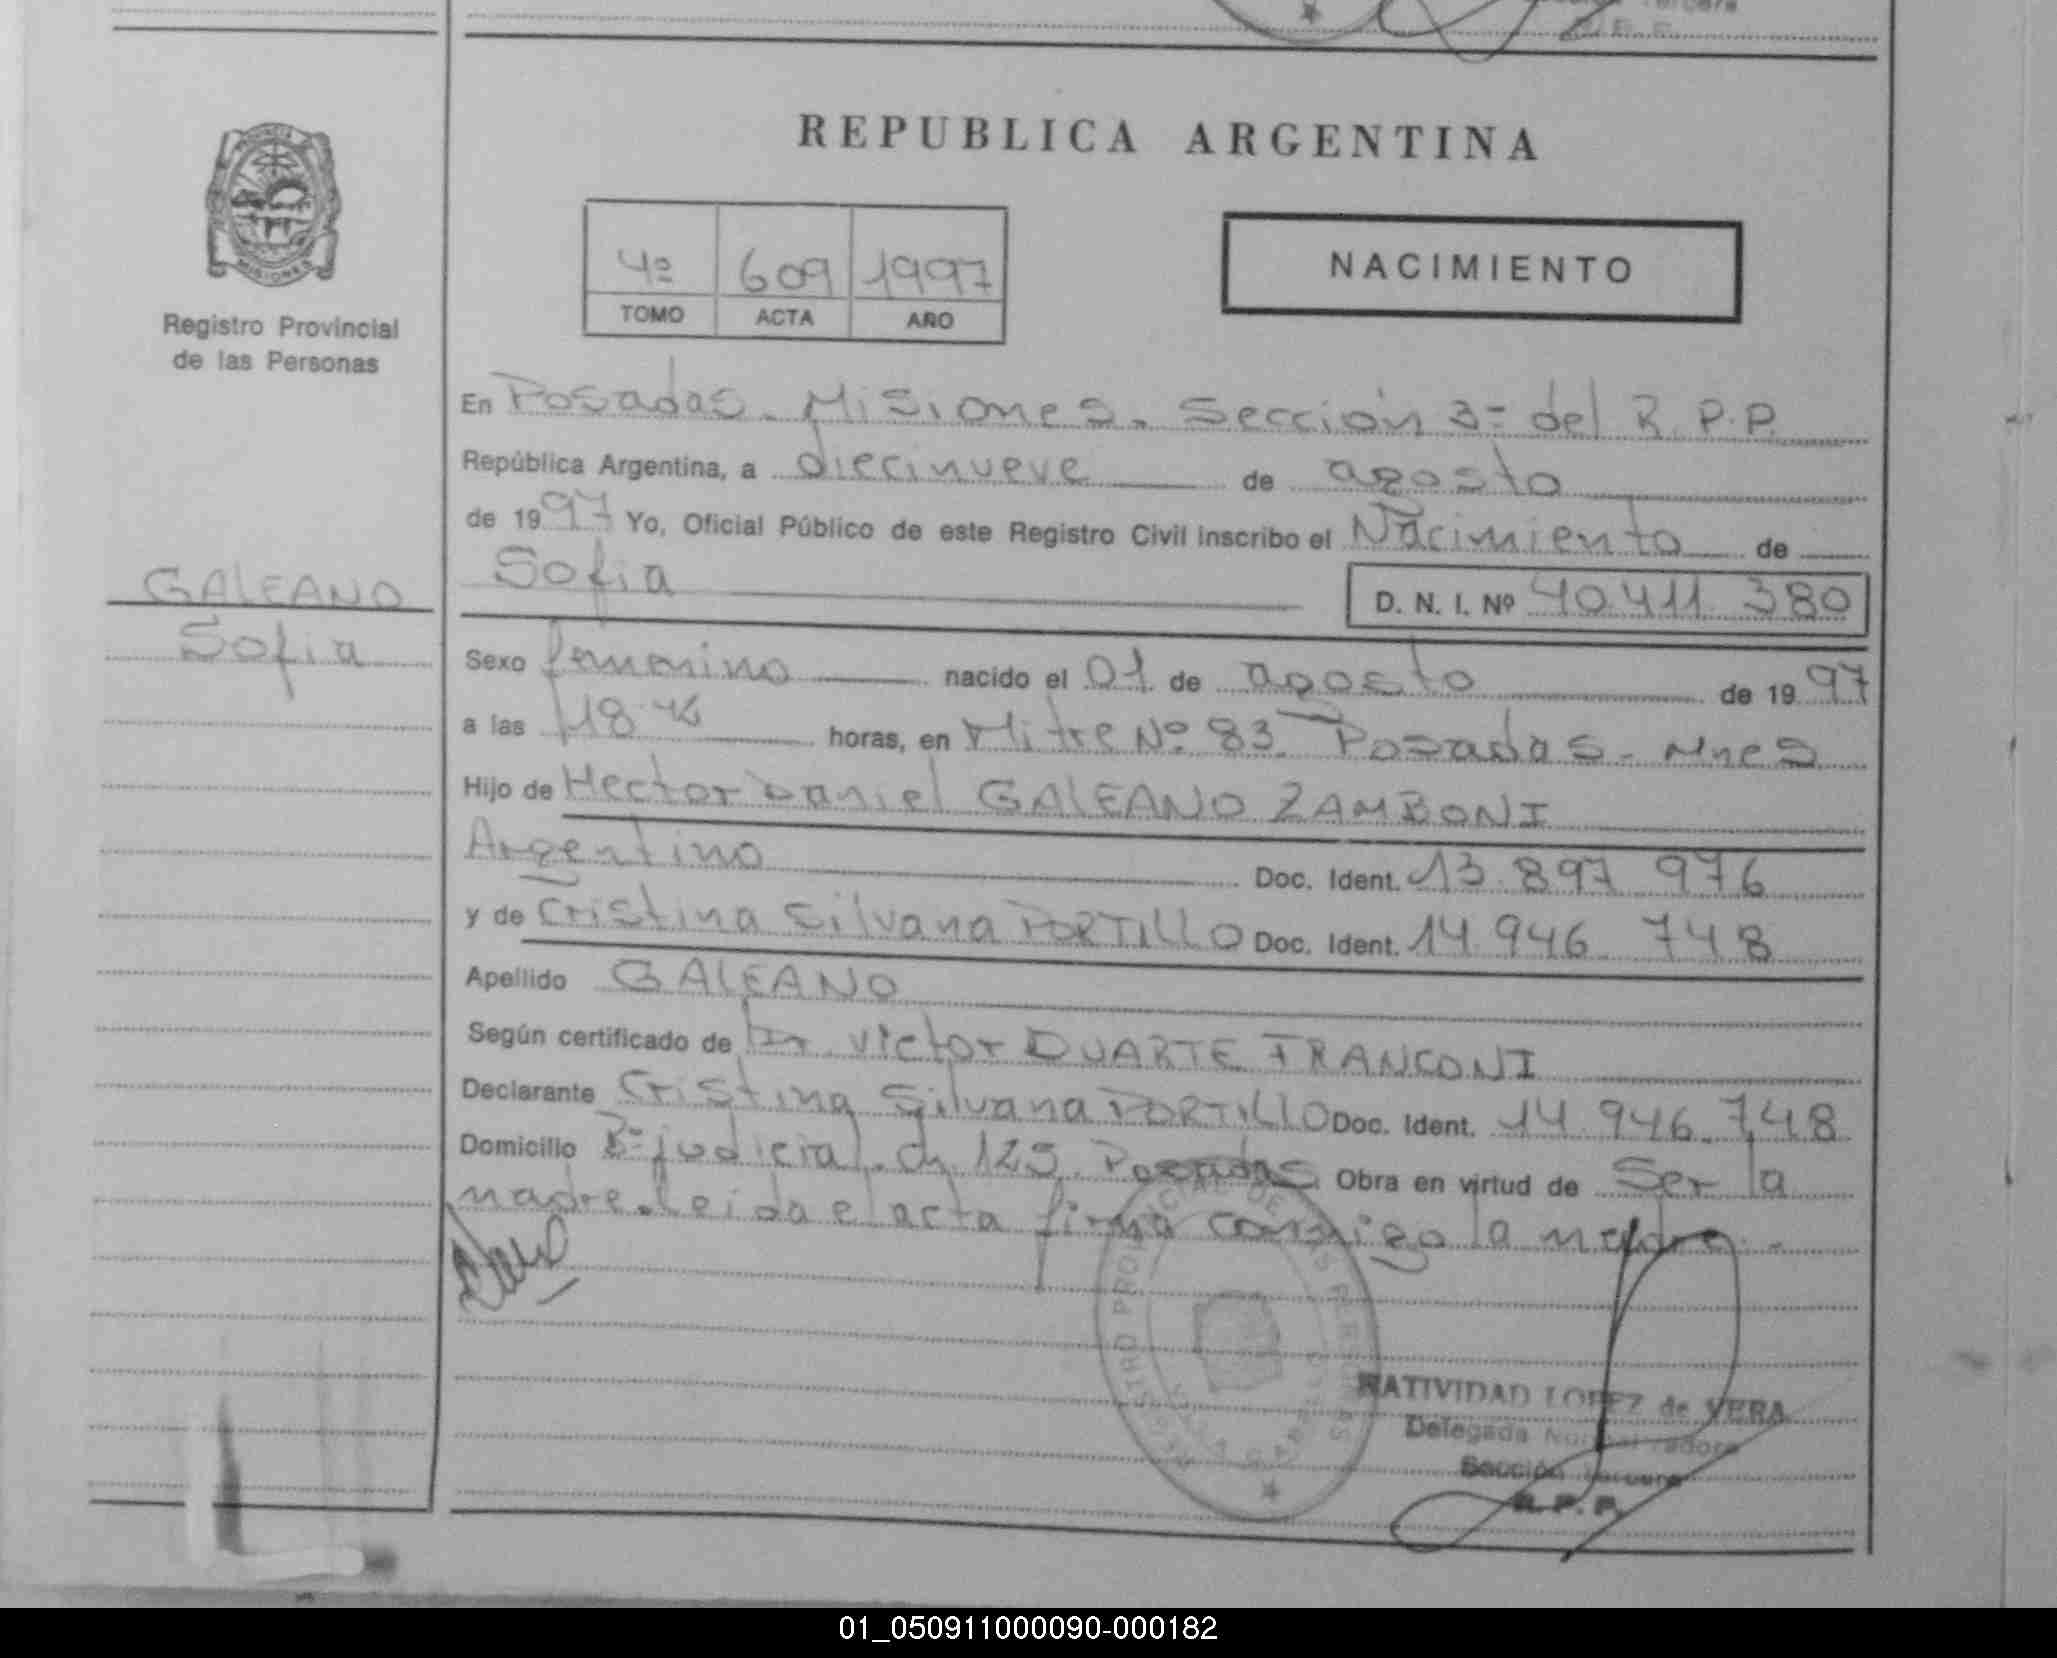 REPUBLICA ARGENTINA
PROVINCIA
MISIONES
Registro Provincial
de las Personas
4º 609 1997
TOMO ACTA AÑO
NACIMIENTO
En Posadas - Misiones. Sección 3= del R.P.P.
República Argentina, a diecinueve de agosto
de 1997 Yo, Oficial Público de este Registro Civil inscribo el Nacimiento de
GALEANO
Sofia
Sofia D. N. I. Nº 40.411.380
Sexo femenino nacido el 01 de agosto de 1997
a las 18 horas, en Mitre Nº 83. Posadas - Mnes
Hijo de Hector Daniel GALEANO ZAMBONI
Argentino Doc. Ident. 13.897 976
y de Cristina Silvana PORTILLO Doc. Ident. 14.946 748
Apellido GALEANO
Según certificado de Dr. Victor DUARTE FRANCONI
Declarante Cristina Silvana PORTILLO Doc. Ident. 14.946.748
Domicilio Bº judicial. ch 125. Posadas Obra en virtud de Ser la
madre. Leida el acta firma conmigo la madre.-
NATIVIDAD LOPEZ de VERA
Delegada
Sección Tercera
R. P. P.
01_050911000090-000182